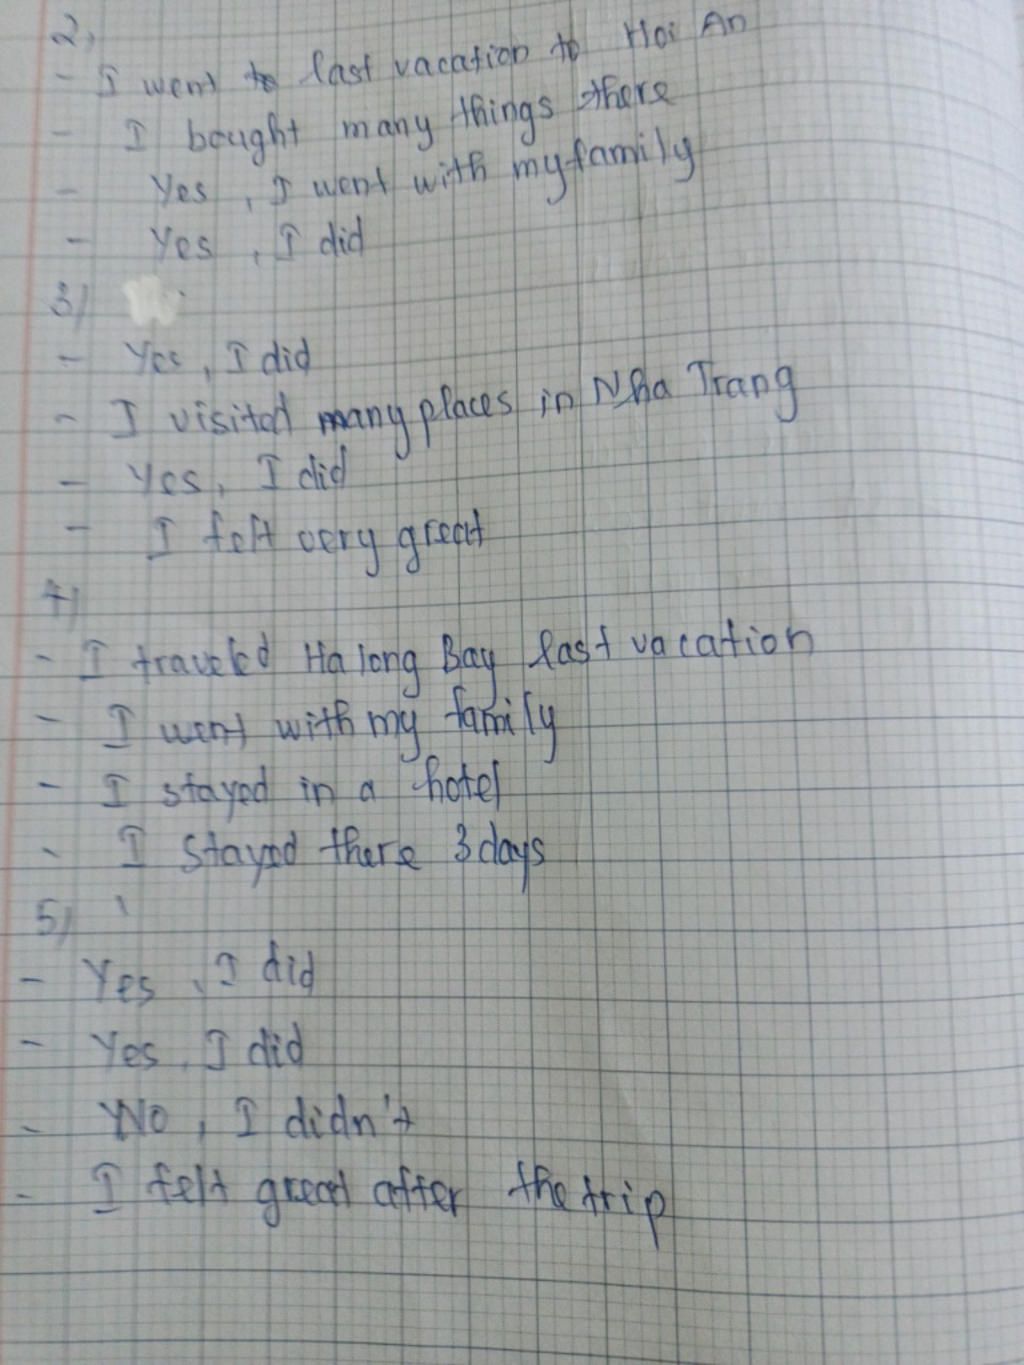 2,
- I went to last vacation to Hoi An
- I bought many things there
- Yes, I went with my family
- Yes, I did
3)
- Yes, I did
- I visited many places in Nha Trang
- Yes, I did
- I felt very great
4)
- I traveled Ha long Bay last vacation
- I went with my family
- I stayed in a hotel
- I stayed there 3 days
5)
- Yes, I did
- Yes, I did
- No, I didn't
- I felt great after the trip